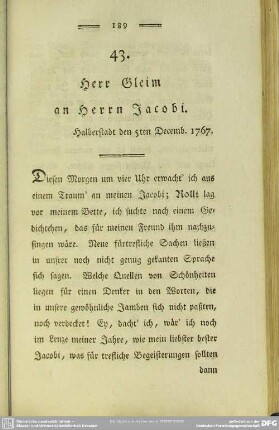 189
43.
Herr Gleim
an Herrn Jacobi.
Halberstadt den 5ten Decemb. 1767.
Diesen Morgen um vier Uhr erwacht' ich aus
einem Traum' an meinen Jacobi; Rolli lag
vor meinem Bette, ich suchte nach einem Ge-
dichtchen, das für meinen Freund ihm nachzu-
singen wäre. Neue fürtrefliche Sachen ließen
in unsrer noch nicht genug gekanten Sprache
sich sagen. Welche Quellen von Schönheiten
liegen für einen Denker in den Worten, die
in unsere gewöhnliche Jamben sich nicht paßten,
noch verdecket! Ey, dacht' ich, wär' ich noch
im Lenze meiner Jahre, wie mein liebster bester
Jacobi, was für trefliche Begeisterungen sollten
dann
DFG